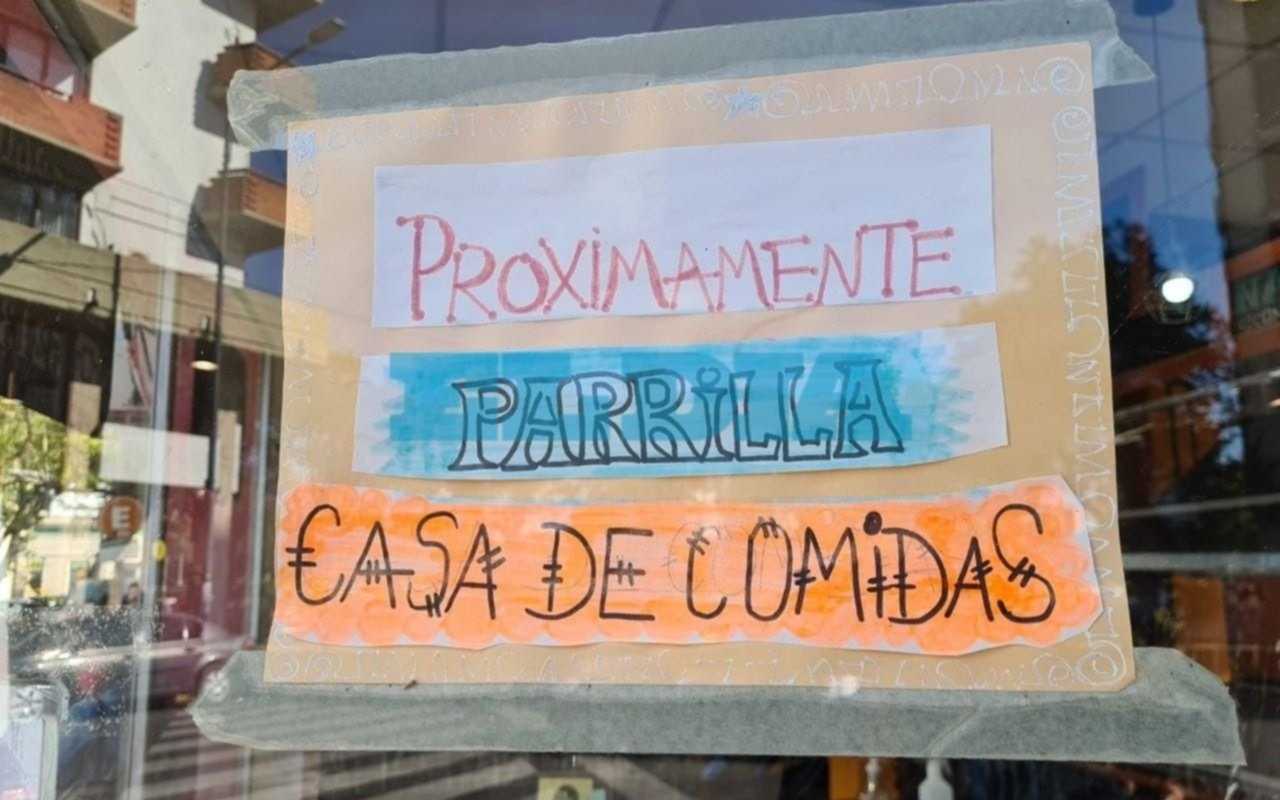 PROXIMAMENTE
PARRILLA
CASA DE COMIDAS
E